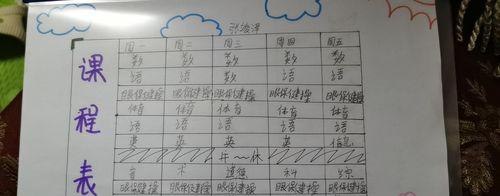 张浚泽
课程表
周一 周二 周三 周四 周五
数 数 数 数 数
语 语 数 语 语
眼保健操 眼保健操 眼保健操 眼保健操 眼保健操
体育 体育 体育 体育 体育
语 语 语 语 语
英 英 英 英 信息
午〜休
音 道德 科 综
眼保健操 眼保健操 眼保健操 眼保健操 眼保健操